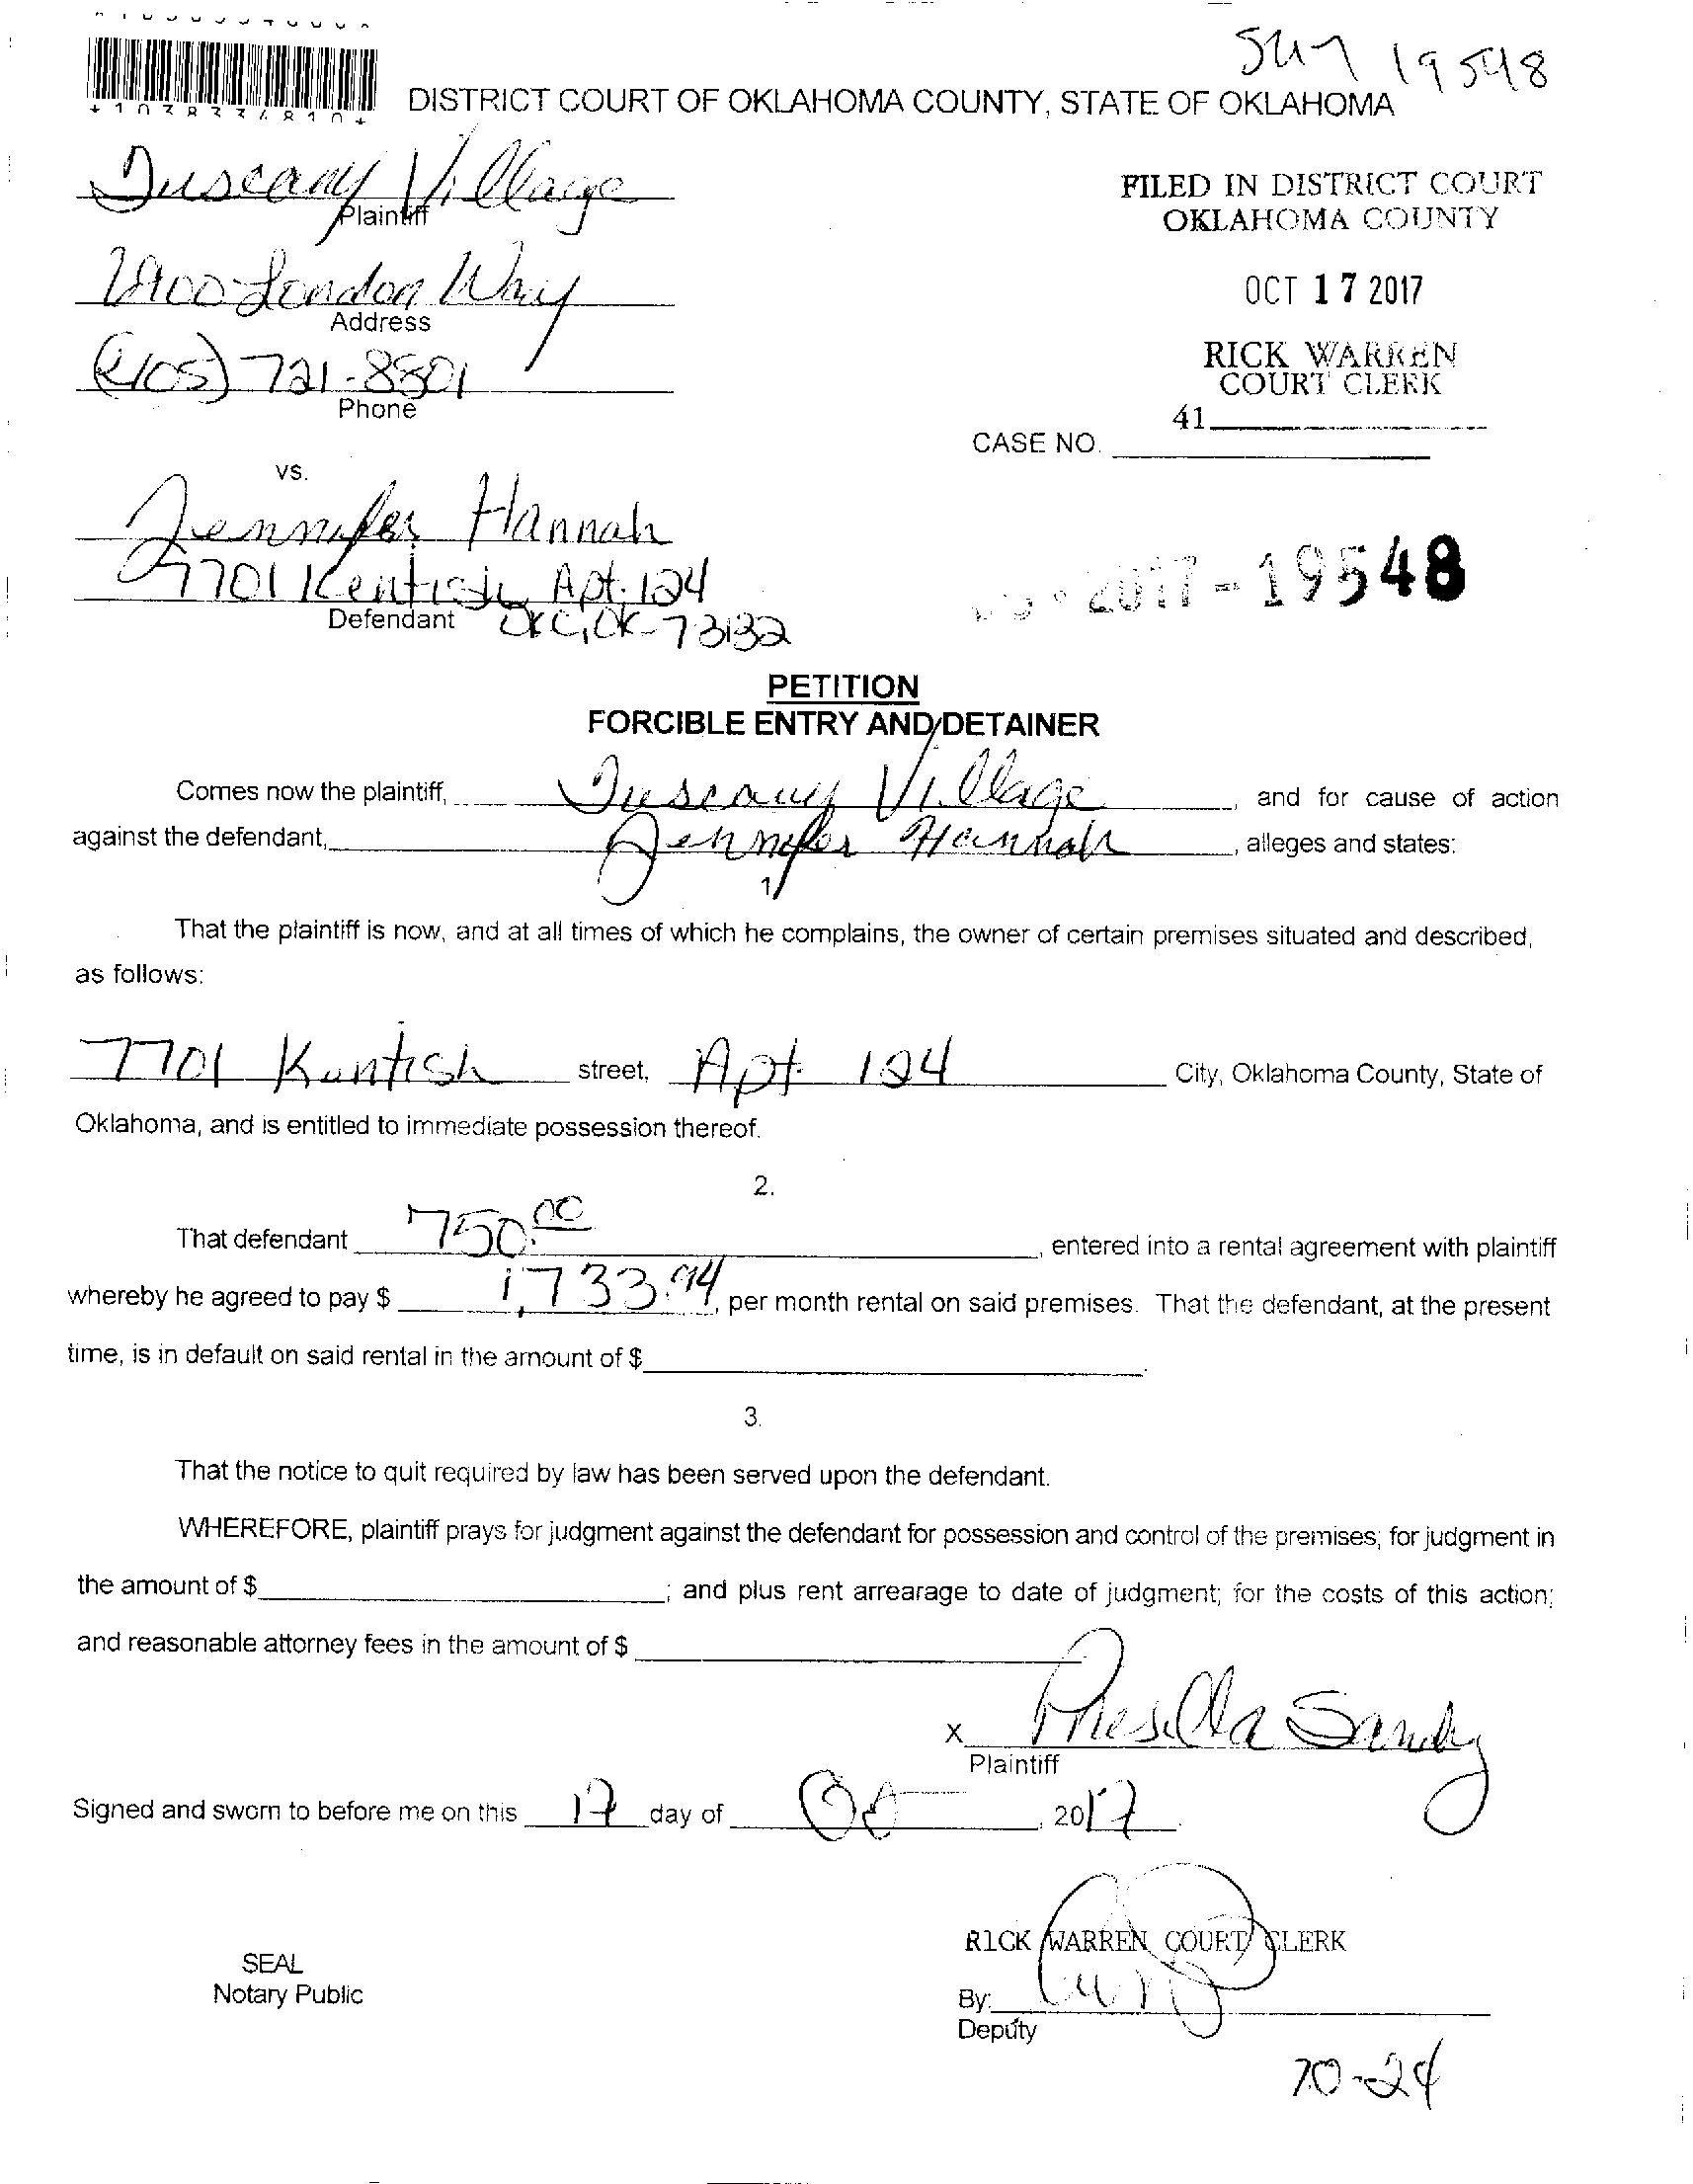 19548
*1038334810*
DISTRICT COURT OF OKLAHOMA COUNTY, STATE OF OKLAHOMA
Tuscany Village
Plaintiff
FILED IN DISTRICT COURT
OKLAHOMA COUNTY
London Way
Address
OCT 17 2017
(405) 721-8501
Phone
RICK WARREN
COURT CLERK
41
CASE NO.
vs.
Jennifer Hannah
7701 Kentish Apt. 124
Defendant OKC, OK 73132
2017-19548
PETITION
FORCIBLE ENTRY AND DETAINER
Comes now the plaintiff, Tuscany Village, and for cause of action
against the defendant, Jennifer Hannah, alleges and states:
1
That the plaintiff is now, and at all times of which he complains, the owner of certain premises situated and described,
as follows:
7701 Kentish street, Apt 124 City, Oklahoma County, State of
Oklahoma, and is entitled to immediate possession thereof.
2.
That defendant 750.00, entered into a rental agreement with plaintiff
whereby he agreed to pay $ 1,733.94, per month rental on said premises. That the defendant, at the present
time, is in default on said rental in the amount of $.
3.
That the notice to quit required by law has been served upon the defendant.
WHEREFORE, plaintiff prays for judgment against the defendant for possession and control of the premises; for judgment in
the amount of $; and plus rent arrearage to date of judgment; for the costs of this action;
and reasonable attorney fees in the amount of $
x
Plaintiff
Signed and sworn to before me on this 17 day of Oct, 2017.
RICK WARREN COURT CLERK
SEAL
Notary Public
By:
Deputy